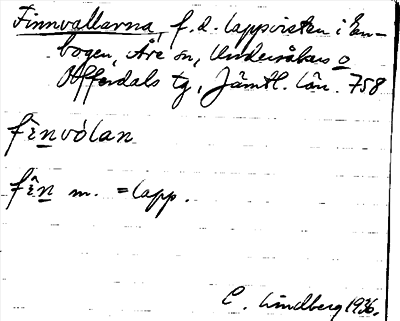 Finnvallarna, f.d. lappvisten i En-
bogen, Åre sn, Undersåkers o
Offerdals tg, Jämtl. län. 758
fìnvólan
fîn m. = lapp.
C. Lindberg 1936.